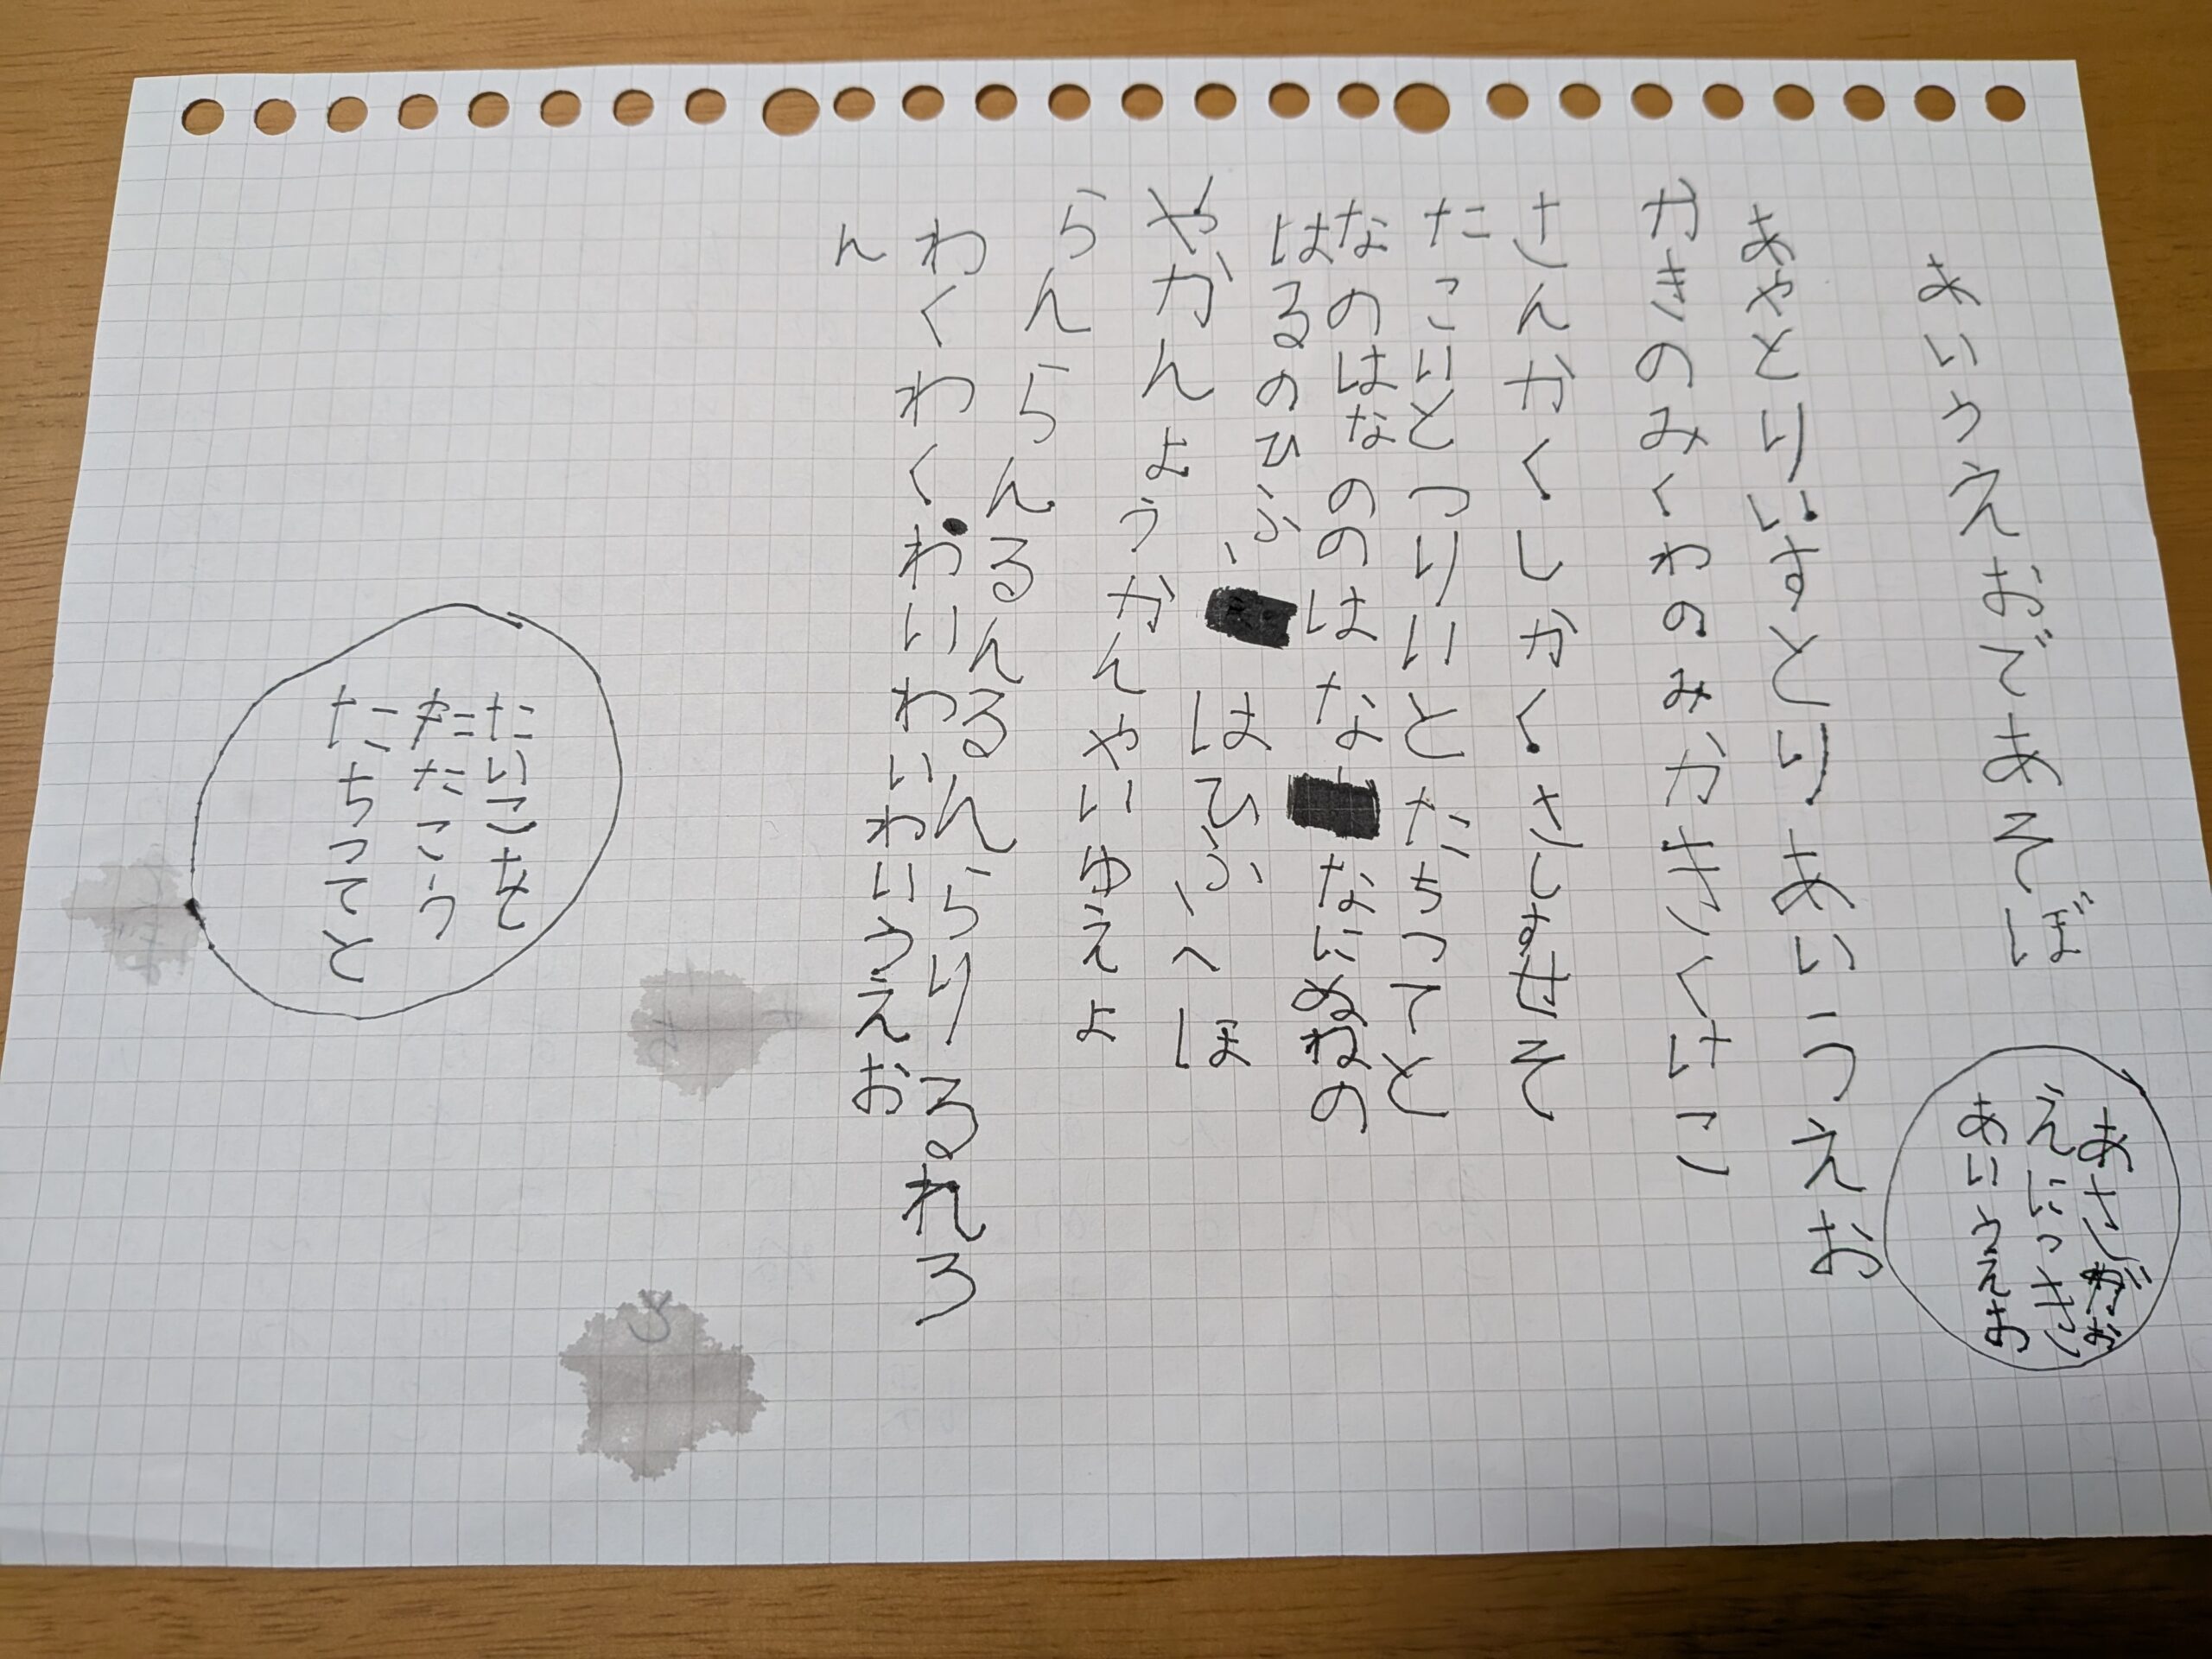 あいうえおであそぼ
えにっき
あいうえお
あやとりいすとりあいうえお
かきのみくわのみかきくけこ
さんかくしかくさしすせそ
たこいとつりいとたちつてと
なのはなののはななにぬねの
はるのひふはひふへほ
やかんようかんやいゆえよ
らんらんるんるんらりるれろ
わくわくわいわいわいうえお
ん
たいこを
たたこう
たちつてと